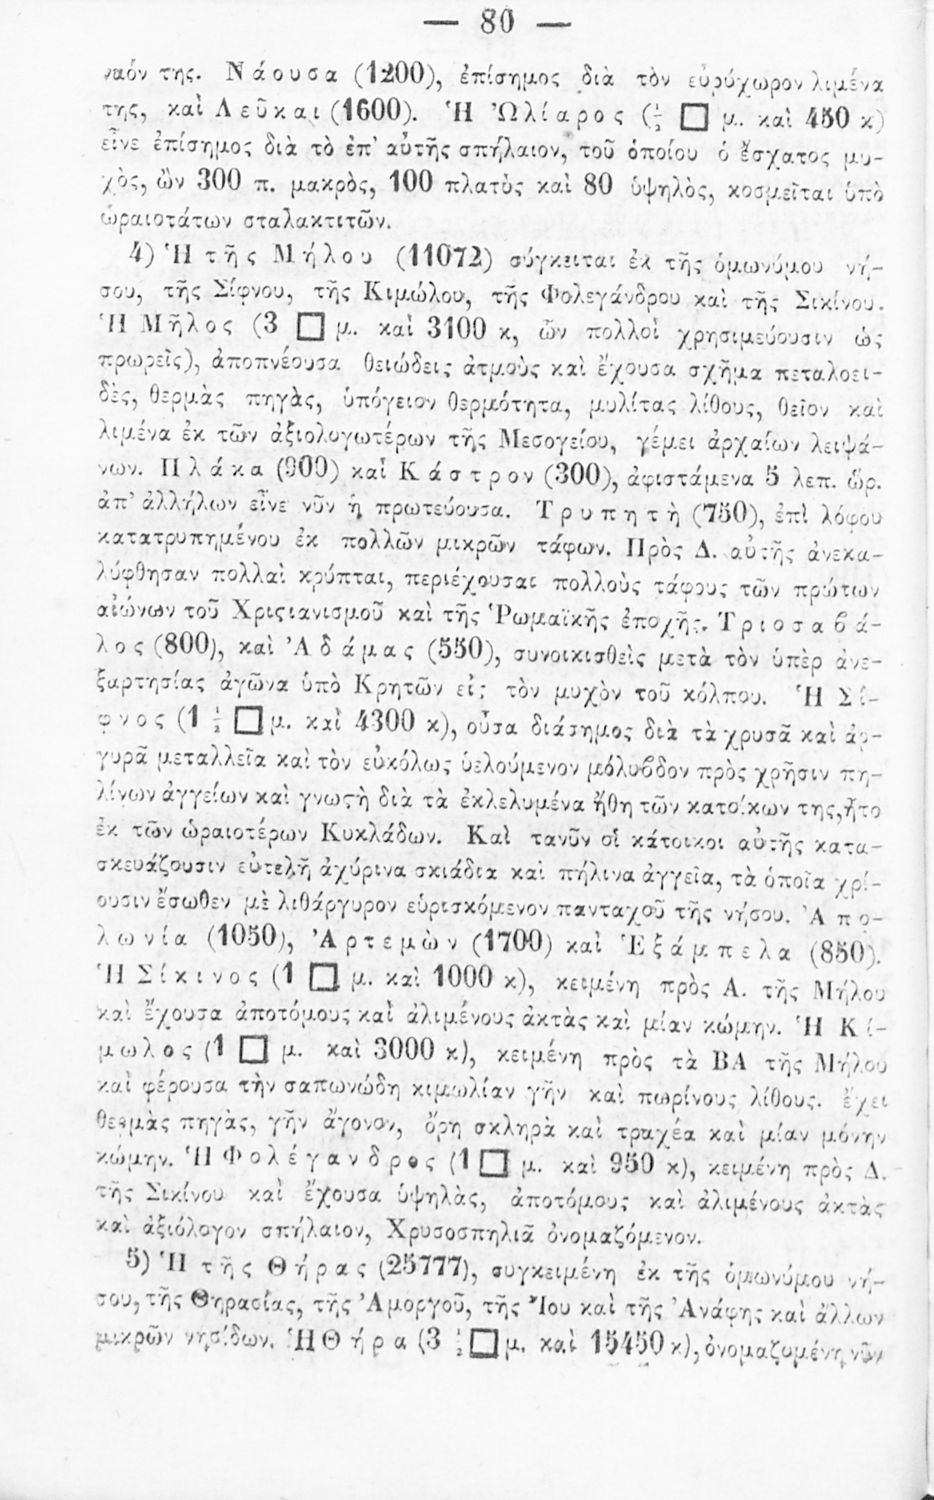 — 80 —
ναόν της. Νάουσα (1200), ἐπίσημος διὰ τὸν εὐρύχωρον λιμένα
της, καὶ Λεῦκαι (1600). Ἡ Ὠλίαρος (½ □ μ. καὶ 450 κ)
εἶνε ἐπίσημος διὰ τὸ ἐπ' αὐτῆς σπήλαιον, τοῦ ὁποίου ὁ ἔσχατος μυ-
χὸς, ὢν 300 π. μακρὸς, 100 πλατὺς καὶ 80 ὑψηλὸς, κοσμεῖται ὑπὸ
ὡραιοτάτων σταλακτιτῶν.
4) Ἡ τῆς Μήλου (11072) σύγκειται ἐκ τῆς ὁμωνύμου νή-
σου, τῆς Σίφνου, τῆς Κιμώλου, τῆς Φολεγάνδρου καὶ τῆς Σικίνου.
Ἡ Μῆλος (3 □ μ. καὶ 3100 κ, ὧν πολλοὶ χρησιμεύουσιν ὡς
πρωρεῖς), ἀποπνέουσα θειώδεις ἀτμοὺς καὶ ἔχουσα σχῆμα πεταλοει-
δὲς, θερμὰς πηγὰς, ὑπόγειον θερμότητα, μυλίτας λίθους, θεῖον καὶ
λιμένα ἐκ τῶν ἀξιολογωτέρων τῆς Μεσογείου, γέμει ἀρχαίων λειψά-
νων. Πλάκα (900) καὶ Κάστρον (300), ἀφιστάμενα 5 λεπ. ὥρ.
ἀπ' ἀλλήλων εἶνε νῦν ἡ πρωτεύουσα. Τρυπητὴ (750), ἐπὶ λόφου
κατατρυπημένου ἐκ πολλῶν μικρῶν τάφων. Πρὸς Δ. αὐτῆς ἀνεκα-
λύφθησαν πολλαὶ κρύπται, περιέχουσαι πολλοὺς τάφους τῶν πρώτων
αἰώνων τοῦ Χριςιανισμοῦ καὶ τῆς Ῥωμαϊκῆς ἐποχῆς. Τριοσαβά-
λος (800), καὶ Ἀδάμας (550), συνοικισθεὶς μετὰ τὸν ὑπὲρ ἀνε-
ξαρτησίας ἀγῶνα ὑπὸ Κρητῶν εἰς τὸν μυχὸν τοῦ κόλπου. Ἡ Σί-
φνος (1 ½ □ μ. καὶ 4300 κ), οὖσα διάσημος διὰ τὰ χρυσᾶ καὶ ἀρ-
γυρᾶ μεταλλεῖα καὶ τὸν εὐκόλως ὑελούμενον μόλυβδον πρὸς χρῆσιν πη-
λίνων ἀγγείων καὶ γνωςὴ διὰ τὰ ἐκλελυμένα ἤθη τῶν κατοίκων της, ἦτο
ἐκ τῶν ὡραιοτέρων Κυκλάδων. Καὶ τανῦν οἱ κάτοικοι αὐτῆς κατα-
σκευάζουσιν εὐτελῆ ἀχύρινα σκιάδια καὶ πήλινα ἀγγεῖα, τὰ ὁποῖα χρί-
ουσιν ἔσωθεν μὲ λιθάργυρον εὑρισκόμενον πανταχοῦ τῆς νήσου. Ἀπο-
λωνία (1050), Ἀρτεμὼν (1700) καὶ Ἐξάμπελα (850).
Ἡ Σίκινος (1 □ μ. καὶ 1000 κ), κειμένη πρὸς Α. τῆς Μήλου
καὶ ἔχουσα ἀποτόμους καὶ ἀλιμένους ἀκτὰς καὶ μίαν κώμην. Ἡ Κί-
μωλος (1 □ μ. καὶ 3000 κ), κειμένη πρὸς τὰ ΒΑ τῆς Μήλου
καὶ φέρουσα τὴν σαπωνώδη κιμωλίαν γῆν καὶ πωρίνους λίθους. ἔχει
θερμὰς πηγὰς, γῆν ἄγονον, ὄρη σκληρὰ καὶ τραχέα καὶ μίαν μόνην
κώμην. Ἡ Φολέγανδρος (1 □ μ. καὶ 950 κ), κειμένη πρὸς Δ.
τῆς Σικίνου καὶ ἔχουσα ὑψηλὰς, ἀποτόμους καὶ ἀλιμένους ἀκτὰς
καὶ ἀξιόλογον σπήλαιον, Χρυσοσπηλιᾶ ὀνομαζόμενον.
5) Ἡ τῆς Θήρας (25777), συγκειμένη ἐκ τῆς ὁμωνύμου νή-
σου, τῆς Θηρασίας, τῆς Ἀμοργοῦ, τῆς Ἴου καὶ τῆς Ἀνάφης καὶ ἄλλων
μικρῶν νησίδων. Ἡ Θήρα (3 ½ □ μ. καὶ 15450 κ), ὀνομαζομένη νῦν